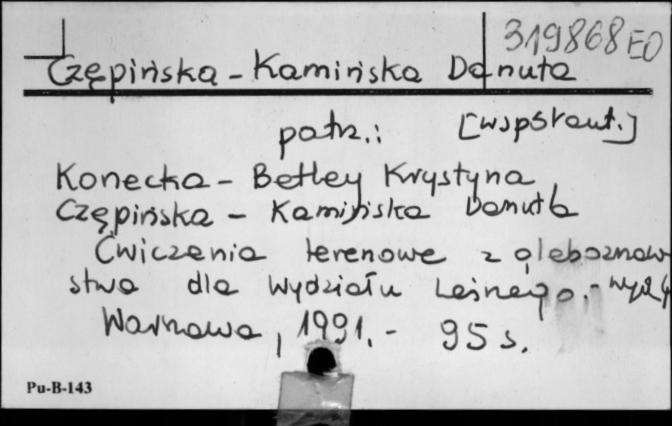 319868 EO
Czępińska - Kamińska Danuta
patrz.: [współaut.]
Konecka - Betley Krystyna
Czępińska - Kamińska Danuta
Ćwiczenia terenowe z gleboznaw
stwa dla Wydziału Leśnego. -
Warszawa, 1991. - 95 s.
Pu-B-143